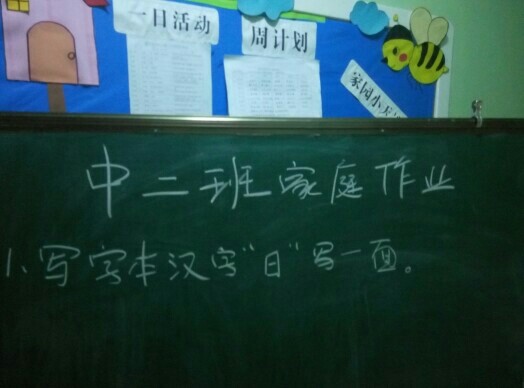 一日活动
周计划
家园小天
中二班家庭作业
1、写字本汉字“日”写一面。